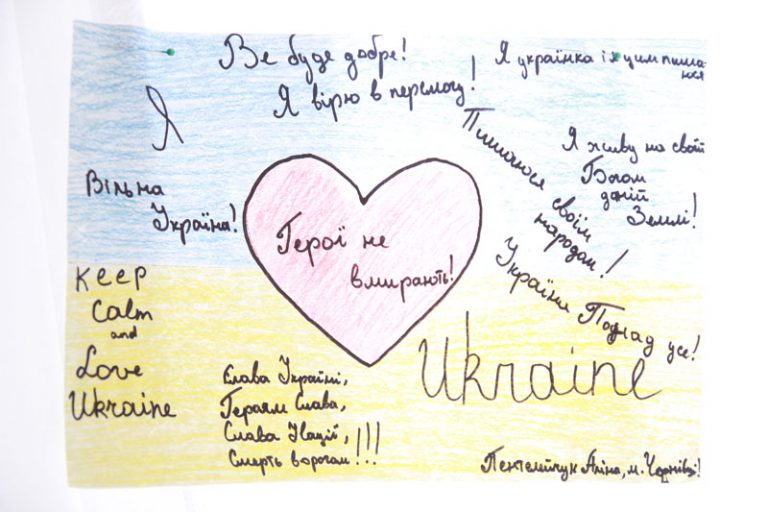 Ве буде добре!
Я вірю в перемогу!
Я українка і я цим пиша-
юся
Я
Я живу на своїй
Богом
даній
Землі!
Пишаюся своїм
народом!
Вільна
Україна!
Герої не
вмирають!
Україна Понад усе!
Keep
Calm
and
Love
Ukraine
Ukraine
Слава Україні,
Героям Слава,
Слава Нації,
Смерть ворогам!!!
Аліна, м. Чернівці!